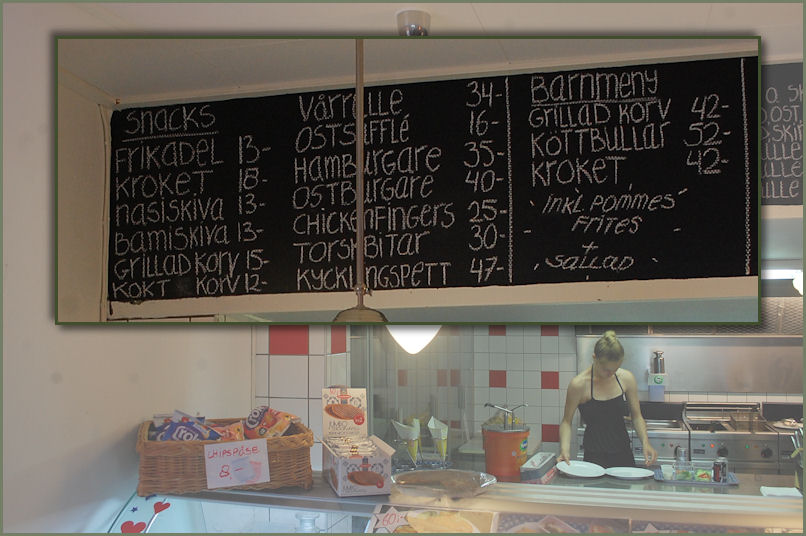 Snacks
Frikadel 13-
Kroket 18-
nasiskiva 13-
Bamiskiva 13-
Grillad Korv 15-
Kokt Korv 12-
Vårrulle 34-
Ostsufflé 16-
Hamburgare 35-
Ostburgare 40-
Chickenfingers 25-
Torskbitar 30-
Kycklingspett 47-
Barnmeny
Grillad Korv 42-
Köttbullar 52-
Kroket 42-
inkl. pommes
Frites
+
sallad
CHIPSPÅSE
8,-
JUMBO
60:-